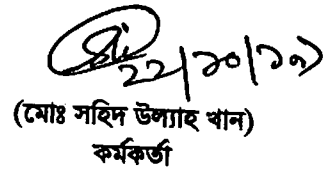 ২২/১০/১৭
(মোঃ সহিদ উল্যাহ খান)
কর্মকর্তা